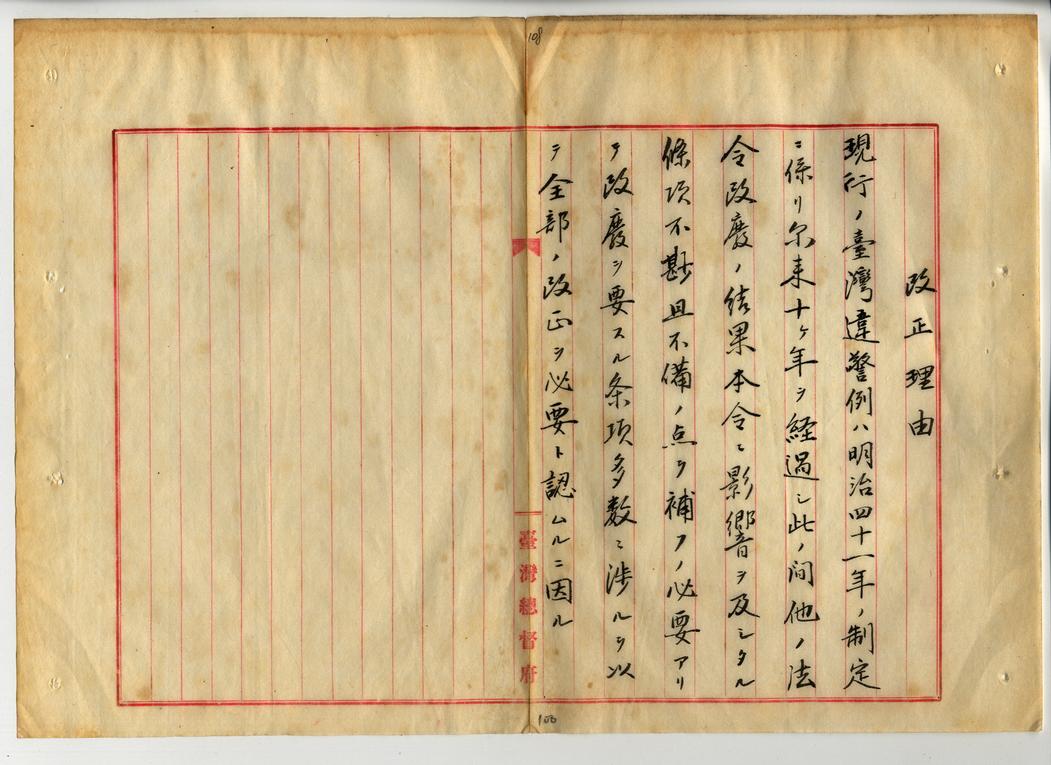 改正理由
現行ノ臺灣違警例ハ明治四十一年ノ制定
ニ係リ尓来十ヶ年ヲ経過シ此ノ間他ノ法
令改廢ノ結果本令ニ影響ヲ及シタル
條項不尠且不備ノ点ヲ補フノ必要アリ
テ改廢ヲ要スル条項多数ニ渉ルヲ以
テ全部ノ改正ヲ必要ト認ムルニ因ル
臺灣總督府
108